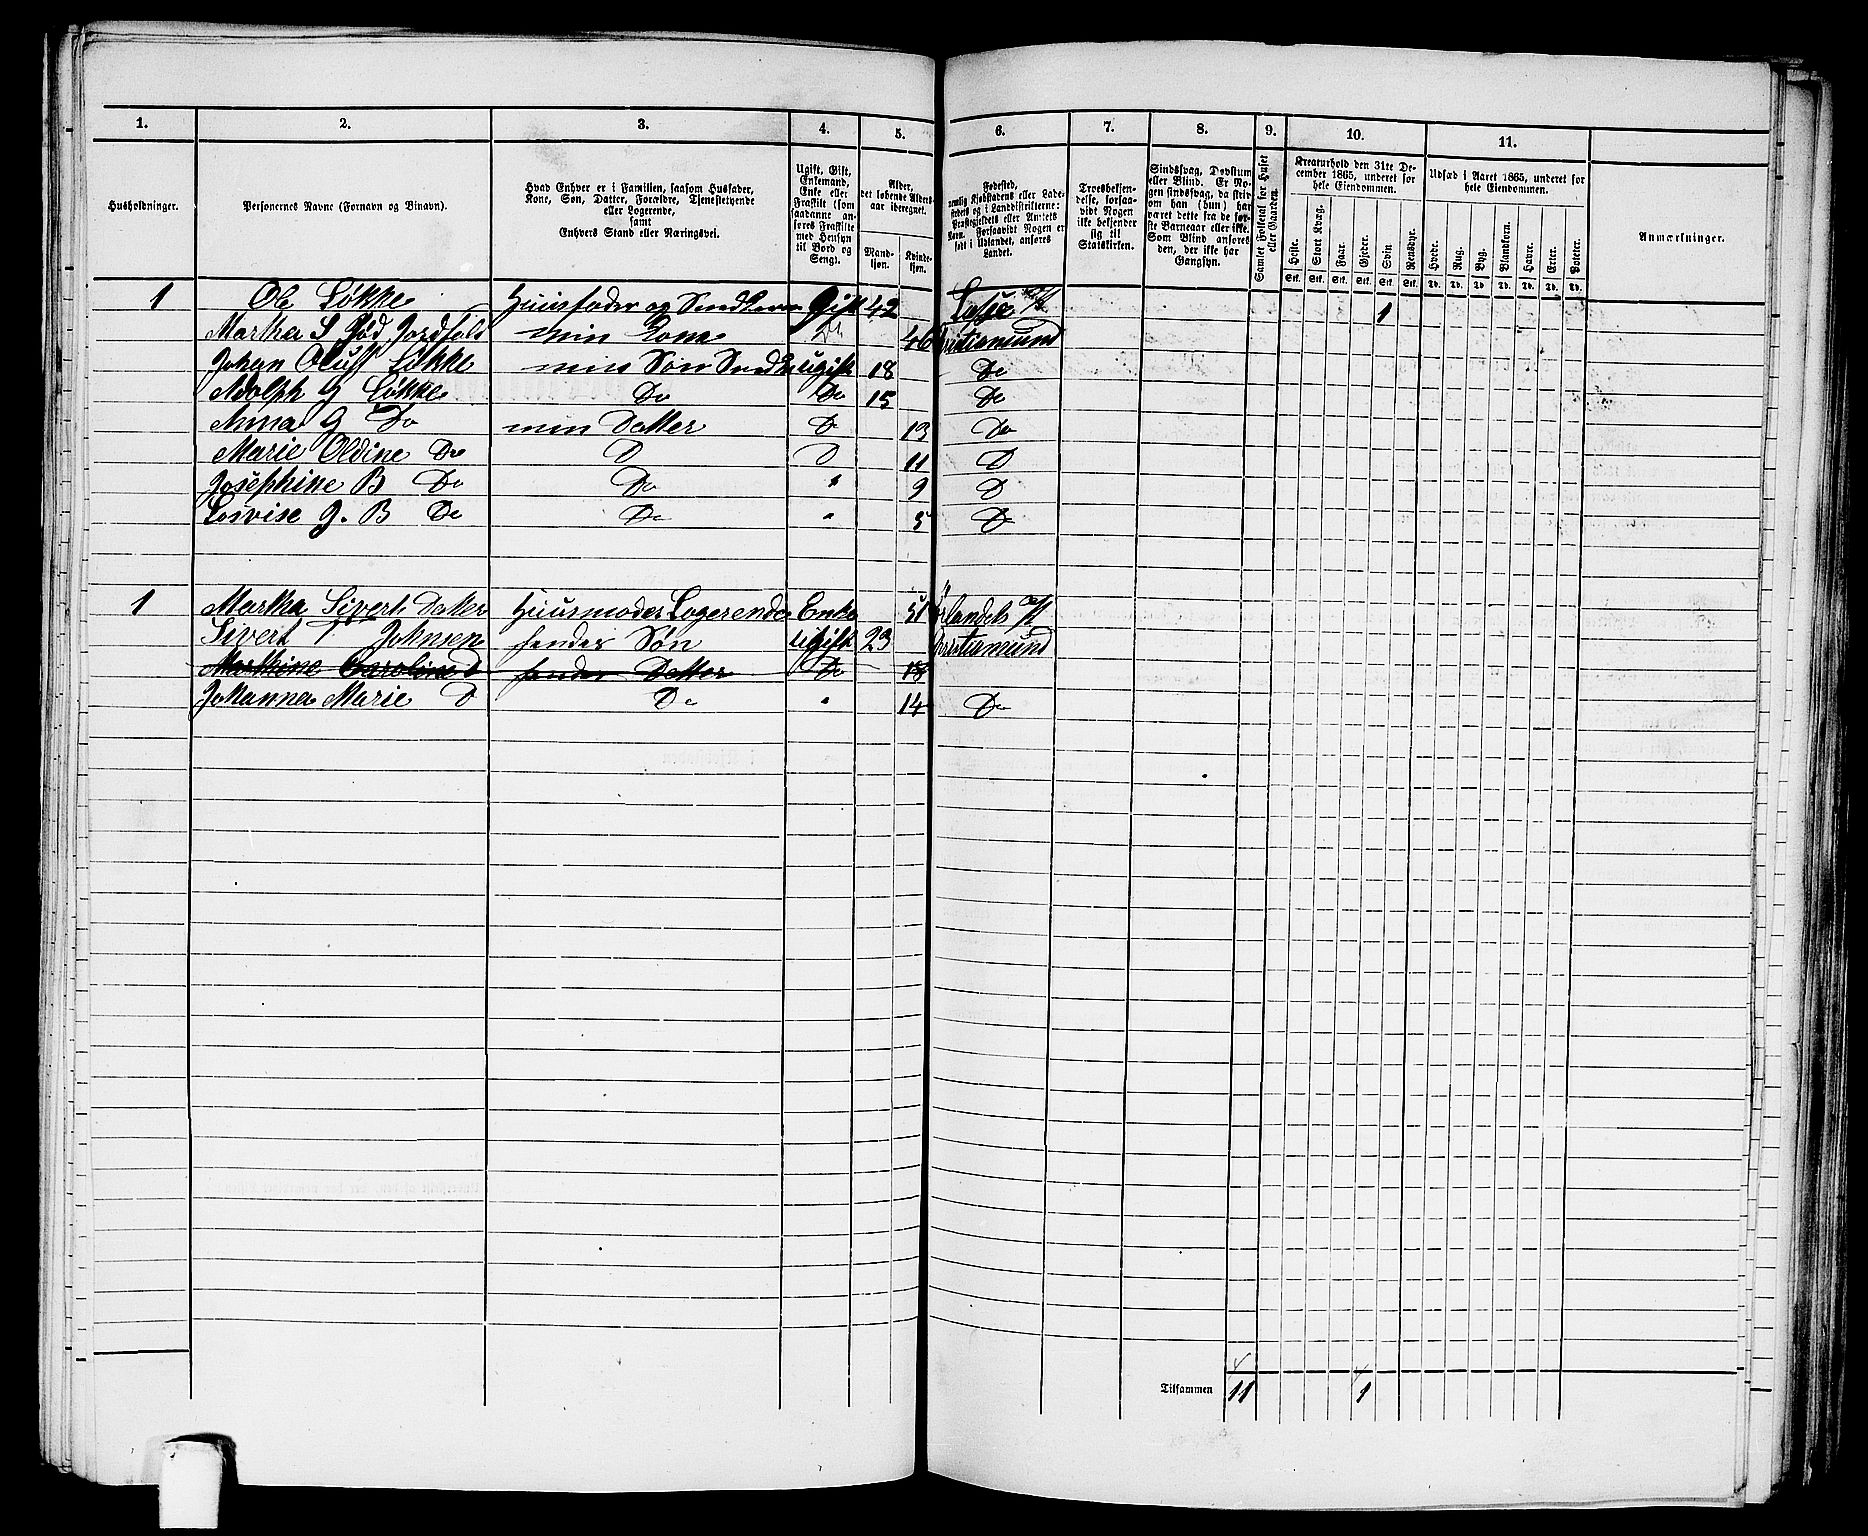 1. 2. 3. 4. 5. 6. 7. 8. 9. 10. 11.
Husholdninger.
Personernes Navne (Fornavn og Binavn).
Hvad Enhver er i Familien, saasom Husfader,
Kone, Søn, Datter, Forældre, Tjenestetyende
eller Logerende,
samt
Enhvers Stand eller Næringsvei.
Ugift, Gift,
Enkemand,
Enke eller
Fraskilt (som
saadanne an-
føres Fraskilte
med Hensyn
til Bord og
Seng).
Alder,
det løbende Alders-
aar iberegnet.
Mand-
kjøn.
Kvinde-
kjøn.
Fødested,
nemlig Kjøbstadens eller Lade-
stedets og i Landdistrikterne:
Præstegjeldets eller Amtets
Navn. Forsaavidt Nogen er
født i Udlandet, anføres
Landet.
Troesbekjen-
delse, forsaa-
vidt Nogen
ikke bekjender
sig til
Statskirken.
Sindssvag, Døvstum
eller Blind. Er No-
gen sindssvag, da skriv-
om han (hun) har
været dette fra de før-
ste Barneaar eller ikke.
Som Blind anføres
den, der ikke har
Gangsyn.
Samlet Folketal for Huset
eller Gaarden.
Kreaturhold den 31te De-
cember 1865, underet for
hele Eiendommen.
Heste. Stort Kvæg. Faar. Gjeder. Svin Rensdyr.
Stk. Stk. Stk. Stk. Stk. Stk.
Udsæd i Aaret 1865, underet for
hele Eiendommen.
Hvede. Rug. Byg. Blandkorn. Havre. Erter. Poteter.
Td. Td. Td. Td. Td. Td. Td.
Anmærkninger.
1 Ole Løkke Huusfader og Gift 42 1
Martha S min Kone Do 46 Christiansund
Johan Oluff Løkke min Søn ugift 18 Do
Adolph G Løkke Do Do 15 Do
Anna G Do min Datter D 13 Do
Marie Oldine Do D D 11 D
Josephine B Do Do " 9 D
Lovise G. B Do Do " 5 D
1 Martha Sivert Datter Huusmoder Logerende Enke 51 Ørlandets
Sivert Johnsen hendes Søn ugift 23 Christiansund
Marthine Caroline D hendes Datter Do 18
Johanna Marie D Do " 14 Do
Tilsammen 11 1